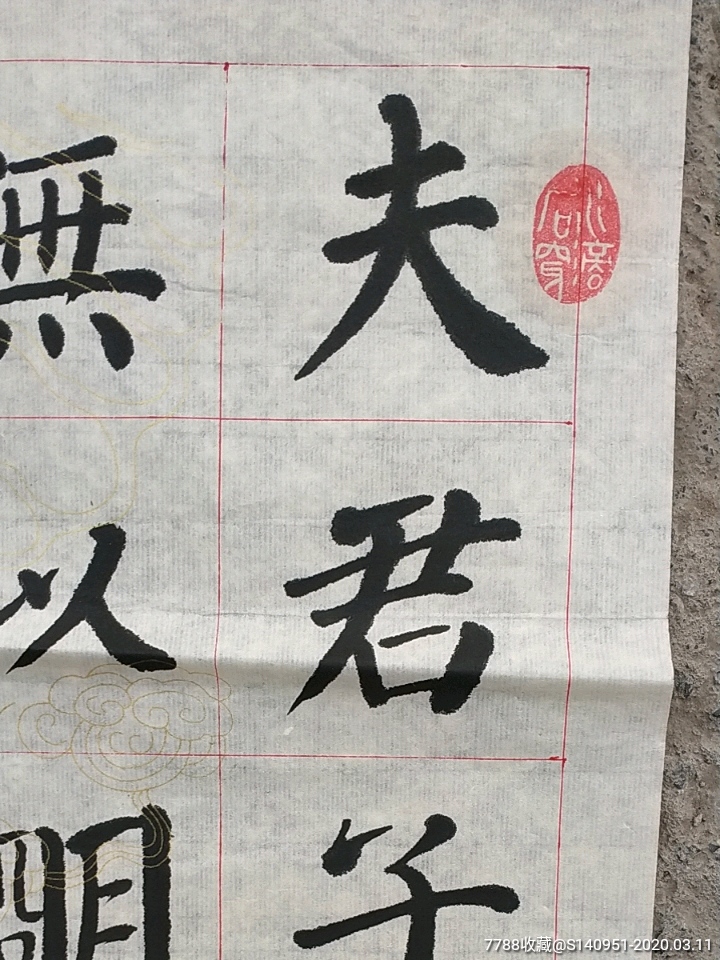 水滴石穿
夫君子
無以明
7788收藏@S140951-2020.03.11